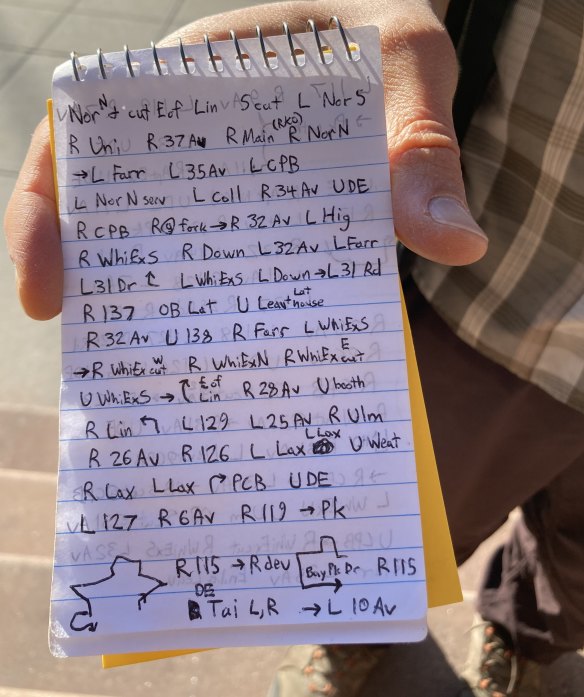 Nor N ↑ cut Eof Lin S cut L Nor S
R Uni R 37 Av R Main (RKO) R NorN
→ L Farr L 35Av L CPB
L Nor N serv L Coll R 34 Av UDE
R CPB R@ fork → R 32 Av L Hig
R WhiExS R Down L 32Av L Farr
L 31 Dr ↑ L WhiExS L Down → L 31 Rd
R 137 OB Lat U Leav+house Lat
R 32 Av U 138 R Farr L WhiExS
→ R WhiEx W cut R WhiExN R WhiEx E cut
U WhiExS → Eof Lin R 28 Av U booth
R Lin L 129 L 25 AV R Ulm
R 26 Av R 126 L Lax L Lax U Weat
R Lax L Lax PCB UDE
L 127 R 6Av R 119 → Pk
R 115 → R dev Bay Pk Dr R 115
DE Tai L,R → L 10 Av